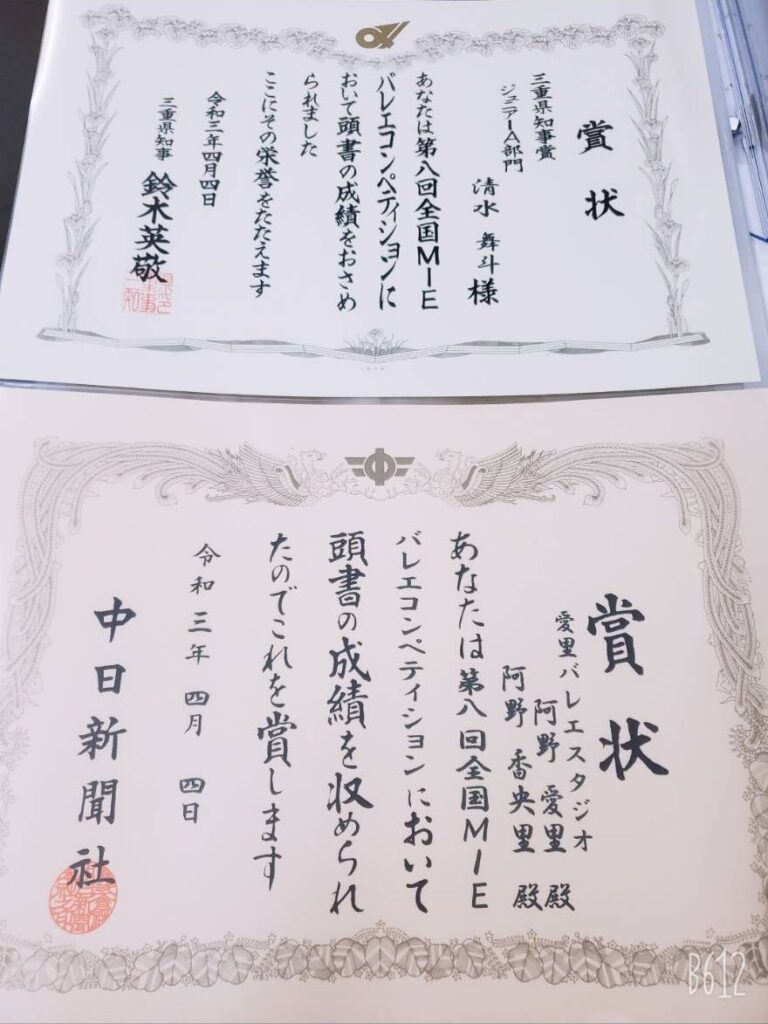 賞状
三重県知事賞
ジュニアーA部門
清水 舞斗 様
あなたは第八回全国MIE
バレエコンペティションに
おいて頭書の成績をおさめ
られました
ここにその栄誉をたたえます
令和三年四月四日
三重県知事 鈴木英敬
賞状
愛里バレエスタジオ
阿野 愛里 殿
阿野 香央里 殿
あなたは第八回全国MIE
バレエコンペティションにおいて
頭書の成績を収められ
たのでこれを賞します
令和三年四月四日
中日新聞社
B612